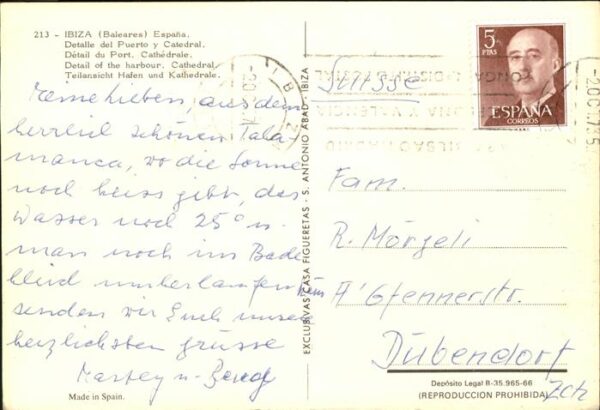 213 - IBIZA (Baleares) España.
Detalle del Puerto y Catedral.
Détail du Port. Cathédrale.
Detail of the harbour. Cathedral.
Teilansicht Hafen und Kathedrale.
Meine Lieben, aus dem
herrlich schönen Tala
manca, wo die Sonne
noch heiss gibt, das
Wasser noch 25° u.
man noch im Bade
kleid umherlaufen kann
senden wir Euch unsere
herzlichsten Grüsse
u.
Made in Spain.
EXCLUSIVAS CASA FIGUERETAS - S. ANTONIO ABAD IBIZA
5
PTAS
ESPAÑA
CORREOS
PONGA DISTRITO POSTAL
Y VALENCIA
BILBAO MADRID
Suisse
Fam.
R. Mörgeli
Dübendorf
Zch
Depósito Legal B-35.965-66
(REPRODUCCION PROHIBIDA)